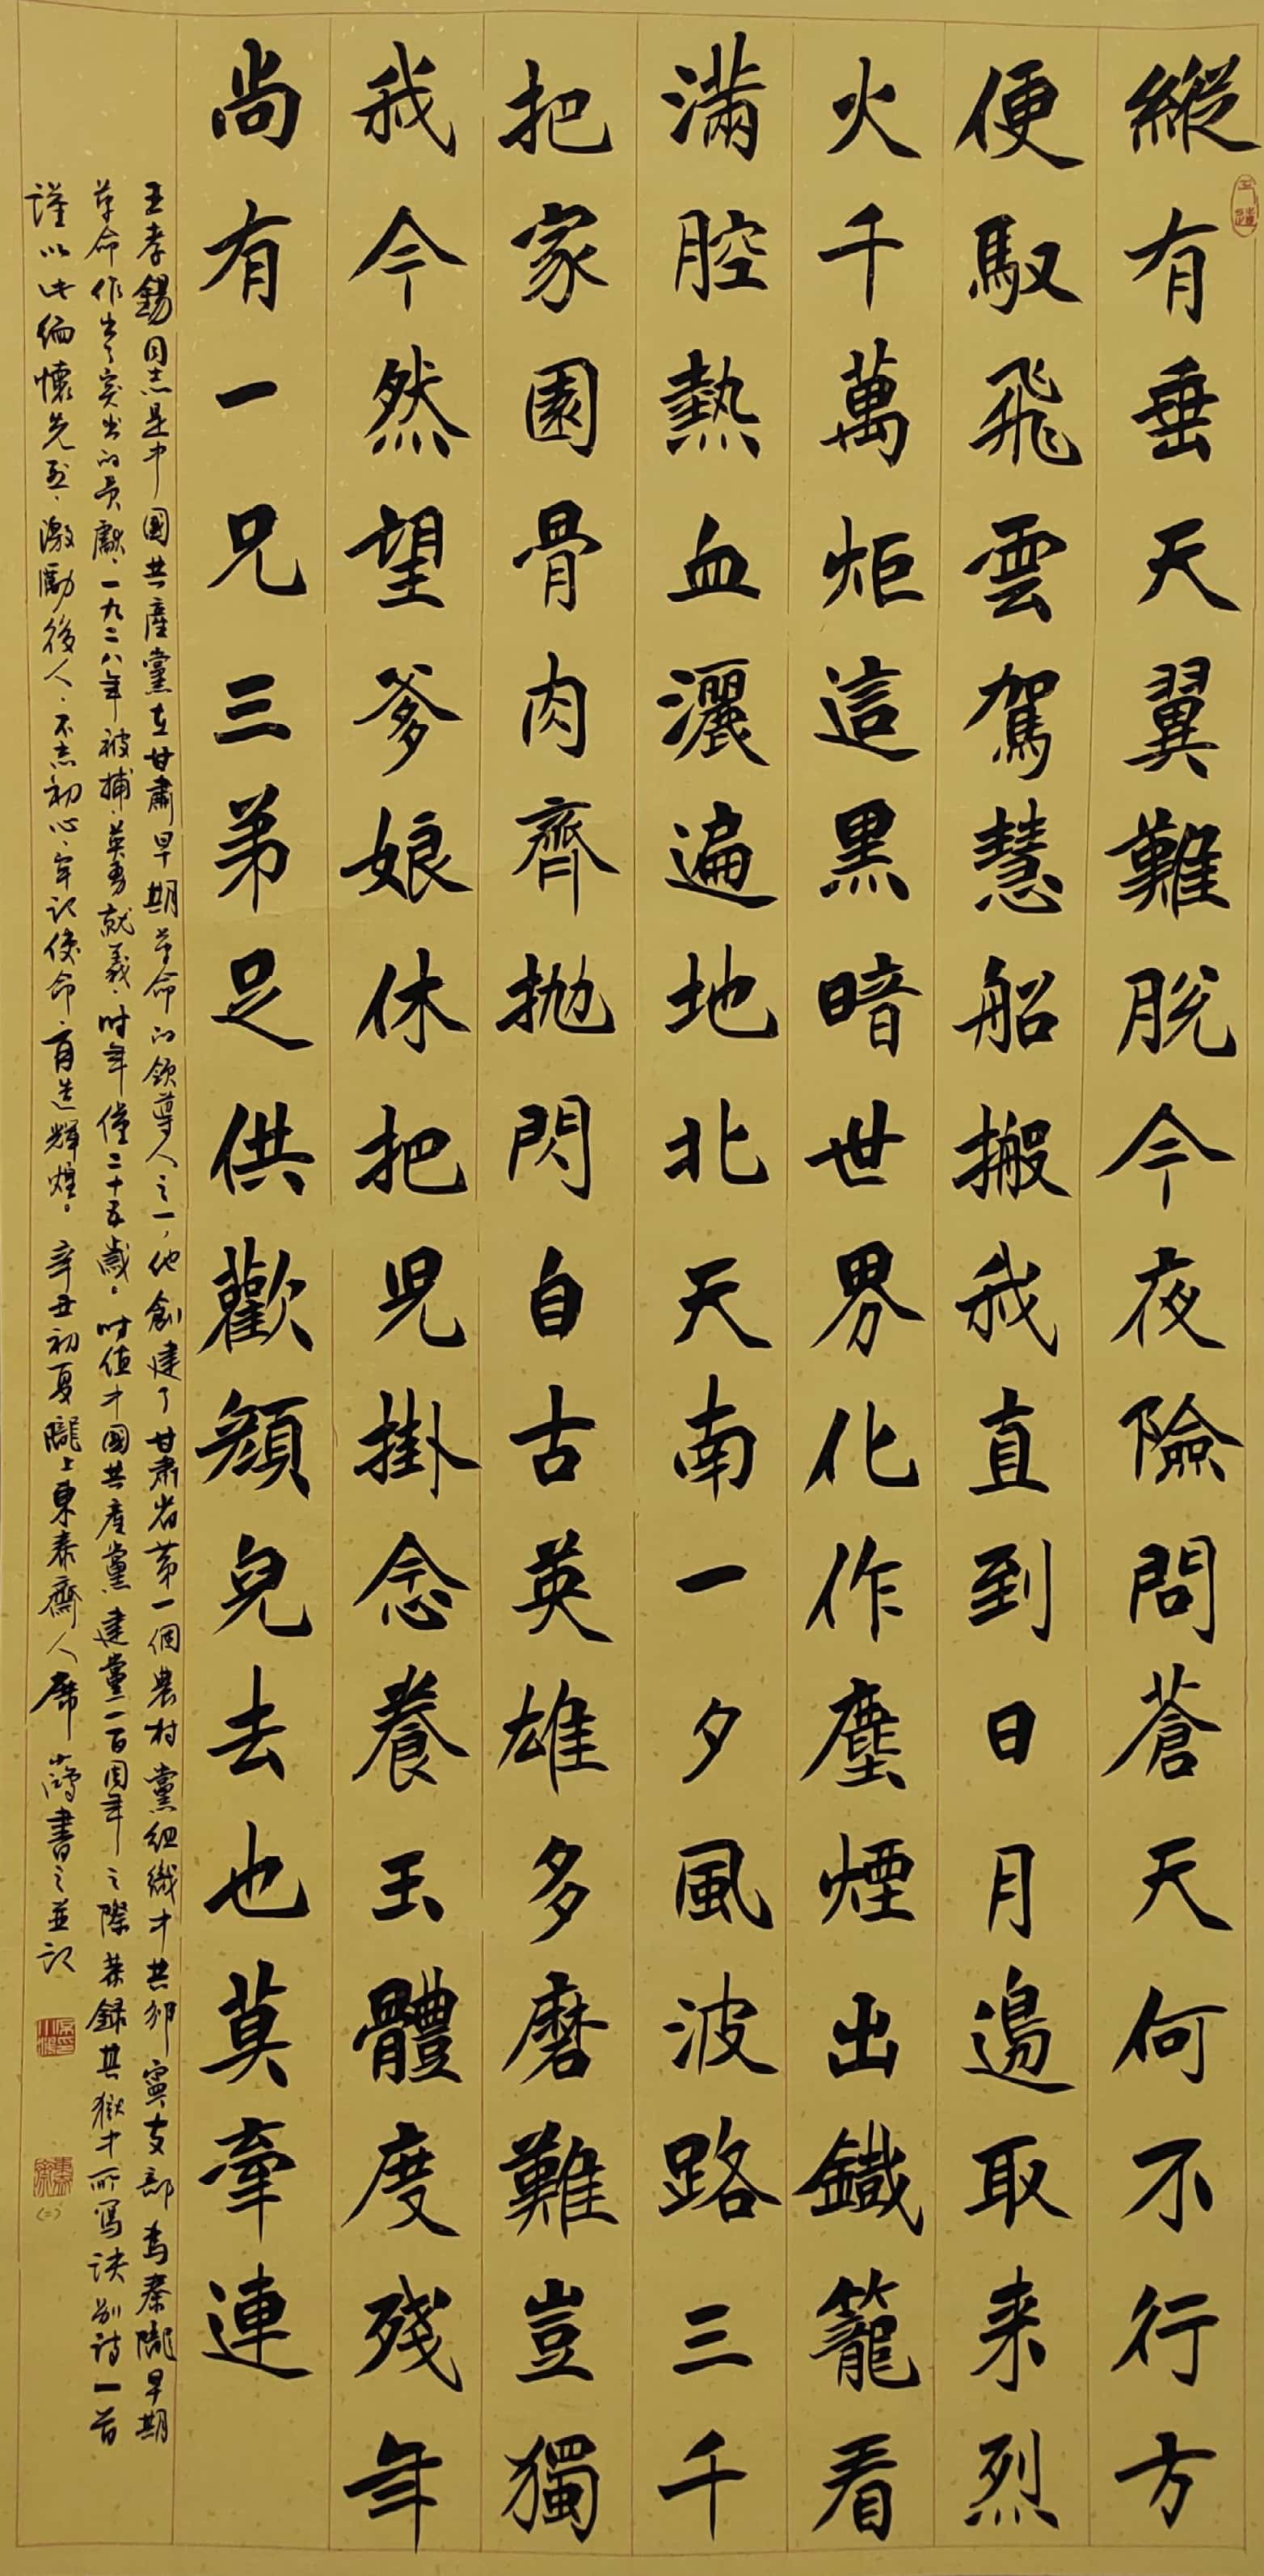 縱有垂天翼難脫今夜險問蒼天何不行方
便馭飛雲駕慧船搬我直到日月邊取来烈
火千萬炬這黑暗世界化作塵煙出鐵籠看
滿腔熱血灑遍地北天南一夕風波路三千
把家園骨肉齊拋閃自古英雄多磨難豈獨
我今然望爹娘休把児掛念養玉體度殘年
尚有一兄三弟足供歡顏兒去也莫牽連
王孝錫同志是中國共産黨在甘肅早期革命的領導人之一，他創建了甘肅省第一個農村黨組織中共邠寧支部為秦隴早期
革命作出了突出的貢獻、一九二八年被捕、英勇就義、时年僅二十五歲。时值中國共產黨建黨一百周年之際恭録其獄中所写诀别诗一首
謹以此缅懷先烈、激勵後人、不忘初心、牢记使命再造輝煌。辛丑初夏隴上東泰齋人席鴻書之並记